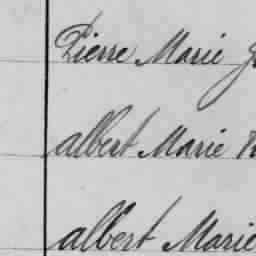 Pierre Marie
albert Marie
albert Marie